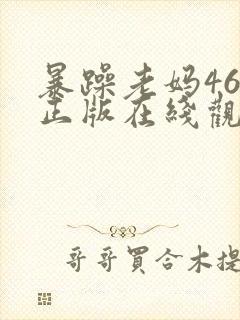 暴躁老妈46
正版在线觀
哥哥買合木提